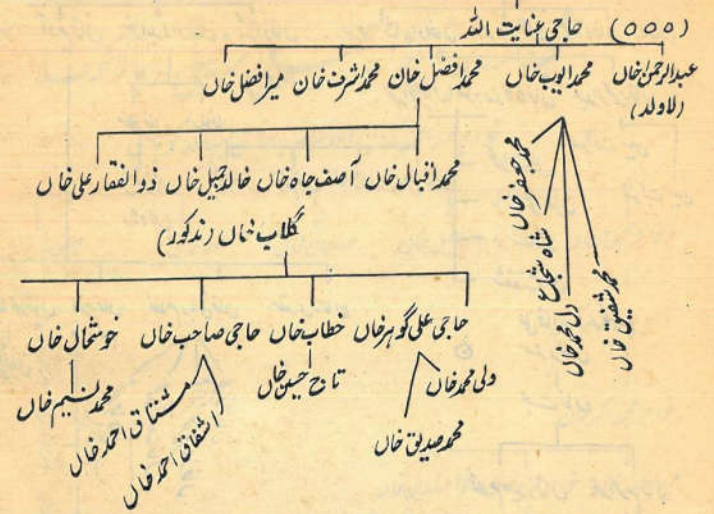 (ooo) حاجی عنایت اللہ
عبدالرحمن خاں محمد ایوب خاں محمد افضل خان محمد اشرف خان میر افضل خاں
(لاولد)
محمد جعفر خاں
شاہ شجاع
دل محمد خاں
محمد شفیق خاں
محمد اقبال خاں آصف جاہ خاں خالد جمیل خاں ذوالفقار علی خاں
گلاب خاں (ندکور)
حاجی علی گوہر خاں خطاب خاں حاجی صاحب خاں خوشحال خاں
ولی محمد خاں
محمد صدیق خاں
تاج حسین خاں
مشتاق احمد خاں
اشفاق احمد خاں
محمد نسیم خاں